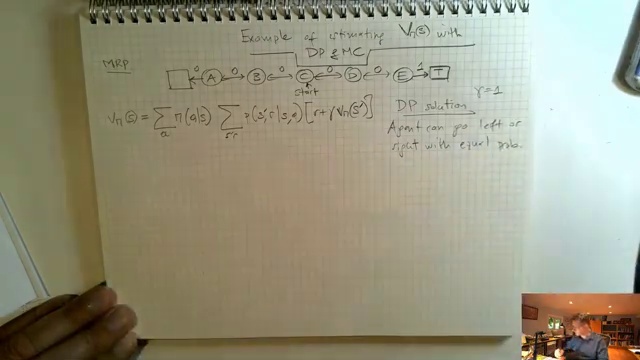 Example of estimating Vπ(s) with
DP & MC
MRP
0 A 0 B 0 C 0 D 0 E 1 T
start
Vπ(s) = Σ π(a|s) Σ p(s',r|s,a) [r+γ Vπ(s')]
a s',r
DP solution γ=1
Agent can go left or
right with equal prob.